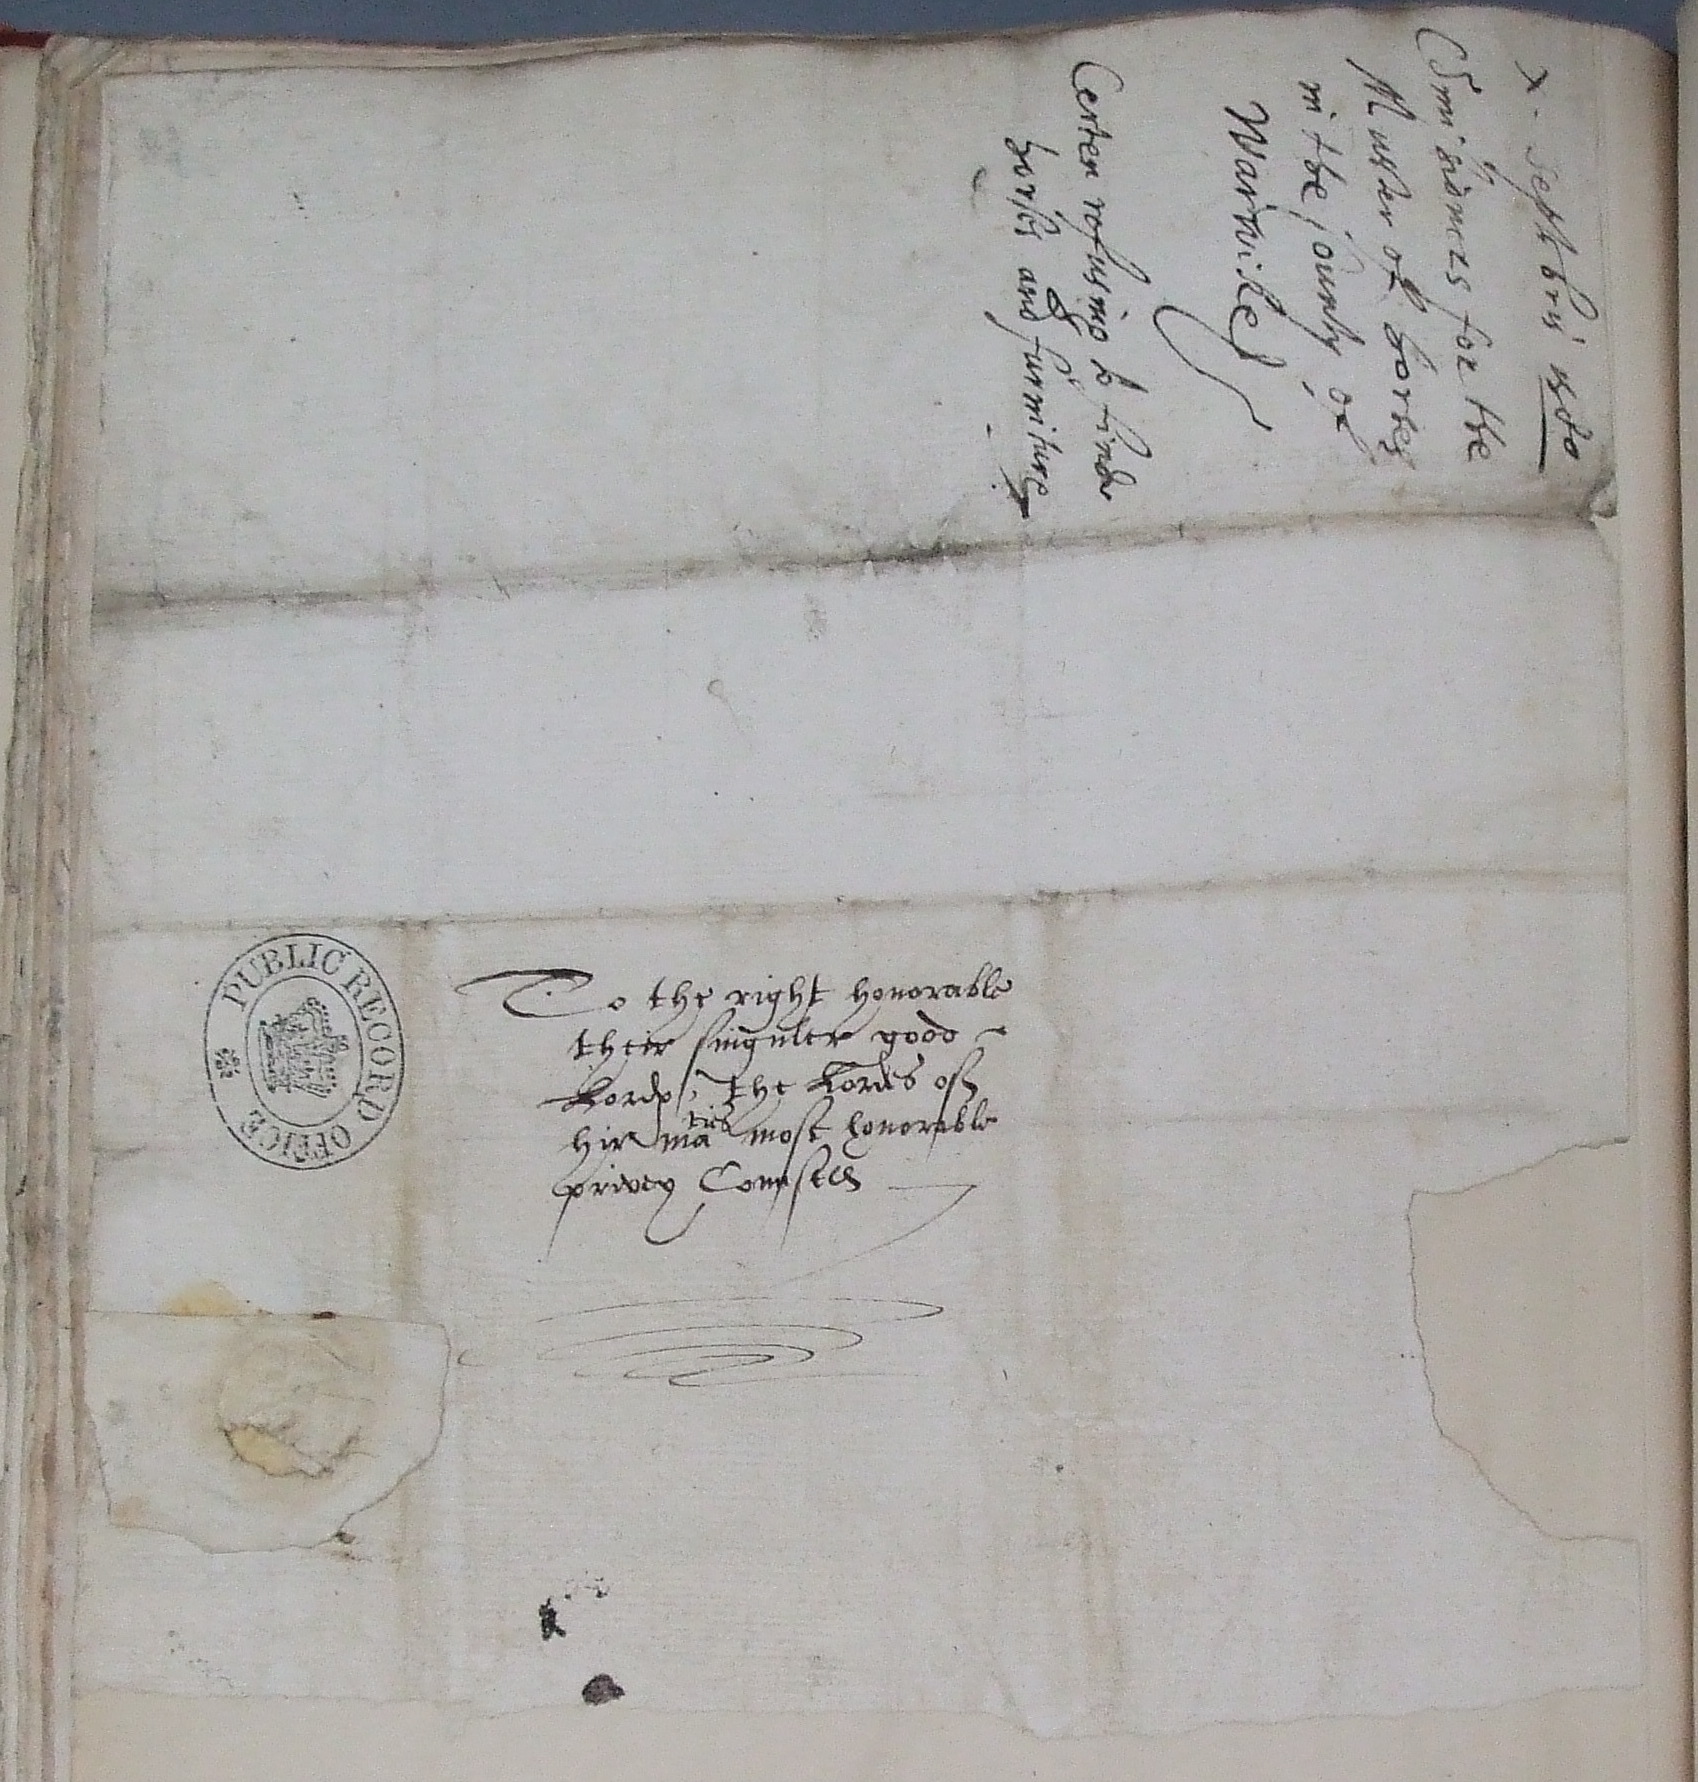 x. Septembris 1580
Comissioners for the
Muster of horses
in the county of
Warwike
Certen refusing to finde
horses and furniture
PUBLIC RECORD OFFICE
To the right honorable
their singuler good
Lordes, the Lordes of
hir maties most honorable
privey Counsell